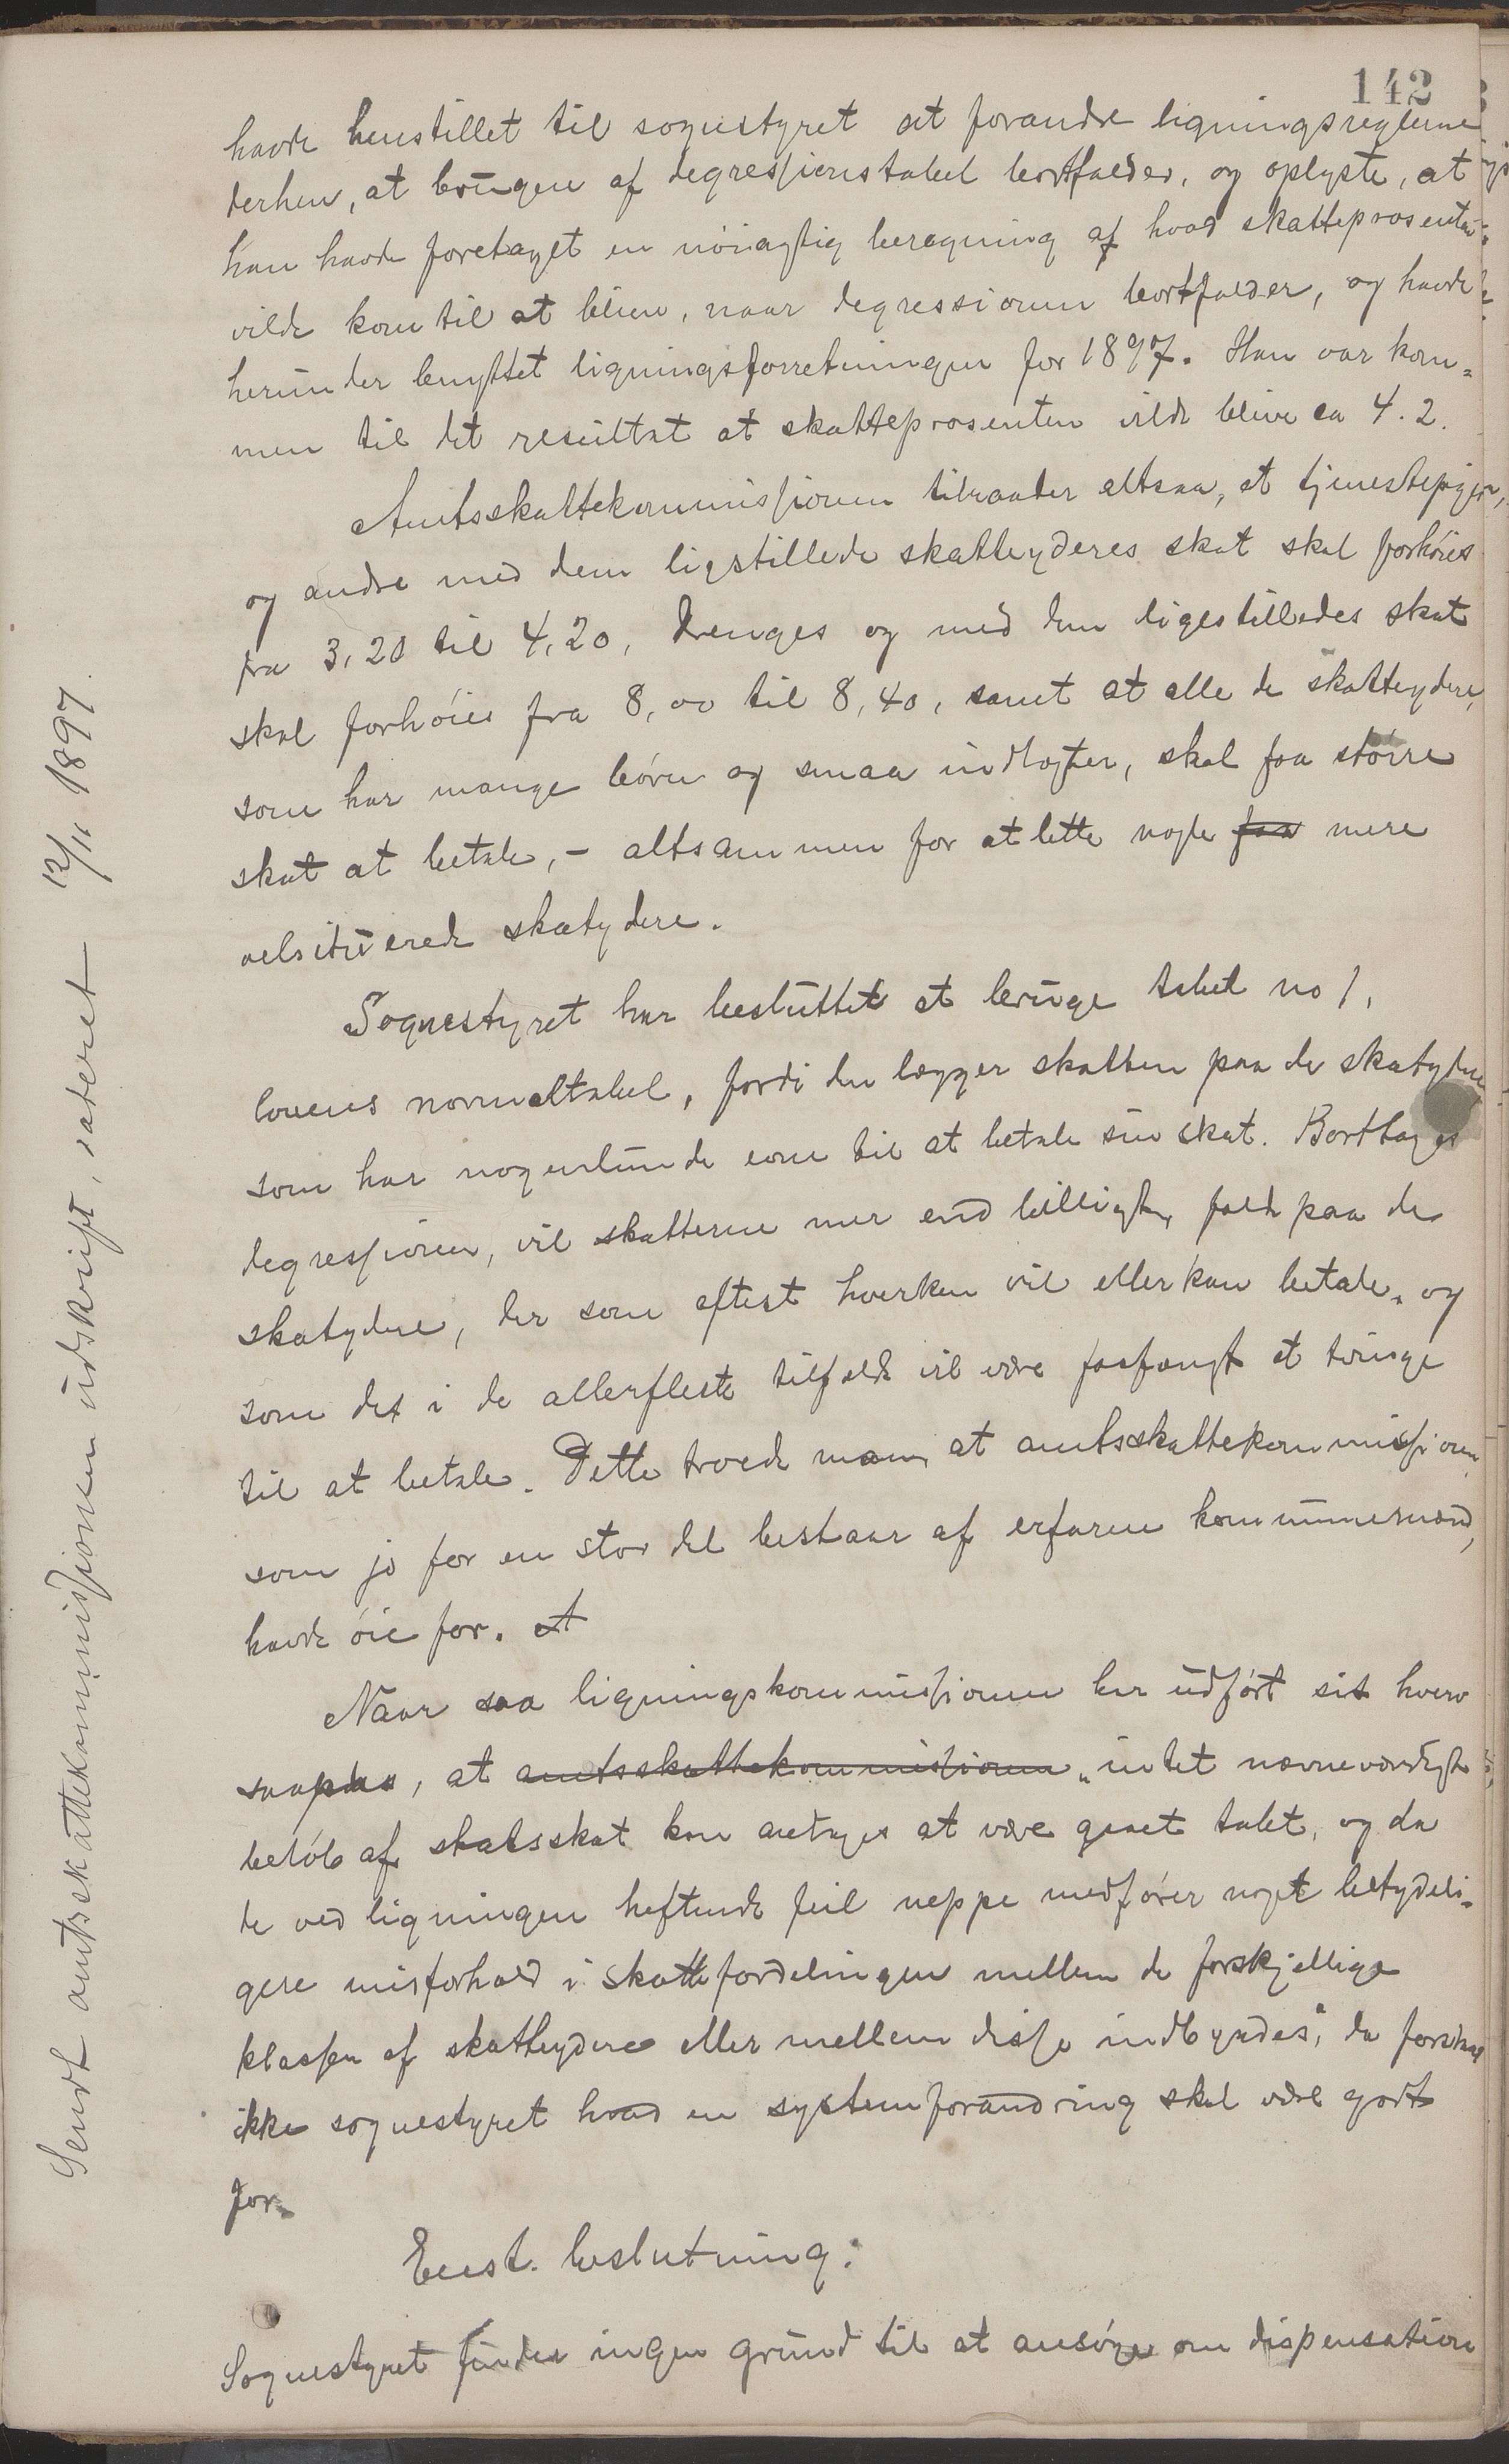 142
havde henstillet til sognestyret at forandre ligningsreglerne
derhen, at brugen af degressionstabel bortfalder, og oplyste, at
han havde foretaget en nöiagtig beregning af hvad skatteprosenten
vilde kom til at blive, naar degressionen bortfalder, og havde
herunder benyttet ligningsforretningen for 1897. Han var kom-
men til det resultat at skatteprosenten vilde blive ca 4.2.
Amtsskattekommissionen tilraader altsaa, at tjenestepiger,
og andre med dem ligstillede skatteyderes skat skal forhöies
fra 3,20 til 4,20, drenges og med dem ligestilledes skat
skal forhöies fra 8,00 til 8,40, samt at alle de skatteydere,
som har mange börn og smaa indtægter, skal faa större
skat at betale, - altsammen for at lette nogle faa mere
velsituerede skatydere.
Sognestyret har besluttet at bruge tabel no 1,
lovens normaltabel, fordi den lægger skatten paa de skatydere
som har nogenlunde evne til at betale sin skat. Borttages
degressionen, vil skatterne mer end billigt, falde paa de
skatydere, der som oftest hverken vil eller kan betale, og
som det i de allerfleste tilfælde vil være forfængt at tvinge
til at betale. Dette troede man, at amtsskattekommissionen,
som jo for en stor del bestaar af erfarne kommunemænd,
havde öie for. at
Naar saa ligningskommissionen har udfört sit hverv
saapas, at amtsskattekommissionen "intet nævneværdigt
belöb af skatsskat kan antages at være gaaet tabt, og da
de ved ligningen heftende feil neppe medförer noget betydeli-
gere misforhold i skattefordelingen mellem de forskjellige
klasser af skatteydere eller mellem disse indbyrdes", da forstaar
ikke sognestyret hvad en systemforandring skal være godt
for.
Enst. beslutning:
Sognestyret finder ingen grund til at ansöge om dispensation
Sendt amtsskattekommissionen udskrift, dateret 12/11 1897.